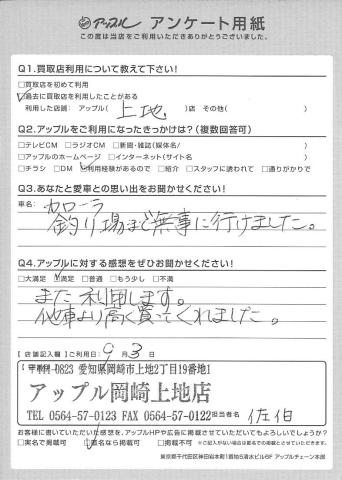 アップル アンケート用紙
この度は当店をご利用いただきありがとうございました。
Q1.買取店利用について教えて下さい!
□買取店を初めて利用
☑過去に買取店を利用したことがある
利用した店舗: アップル( 上地 )店 その他( )
Q2.アップルをご利用になったきっかけは?(複数回答可)
□テレビCM □ラジオCM □新聞・雑誌(媒体名/ )
□アップルのホームページ □インターネット(サイト名 )
□チラシ □DM ☑利用経験があるので □紹介 □スタッフに誘われて □通りがかりで
Q3.あなたと愛車との思い出をお聞かせください!
車名: カローラ
釣り場まで無事に行けました。
Q4.アップルに対する感想をぜひお聞かせください!
□大満足 ☑満足 □普通 □もう少し □不満
また利用します。
他車より高く買ってくれました。
【店舗記入欄】ご利用日: 9月3日
-0823 愛知県岡崎市上地2丁目19番地1
アップル岡崎上地店
TEL 0564-57-0123 FAX 0564-57-0122 担当者名 佐伯
お客様に書いていただいた感想を、アップルHPや広告に掲載させていただいてもよろしいでしょうか?
□実名で掲載可 ☑匿名なら掲載可 □掲載不可 ※ご記入がない場合は匿名での掲載とさせていただきます。
東京都千代田区神田岩本町1番地5清水ビル6F アップルチェーン本部